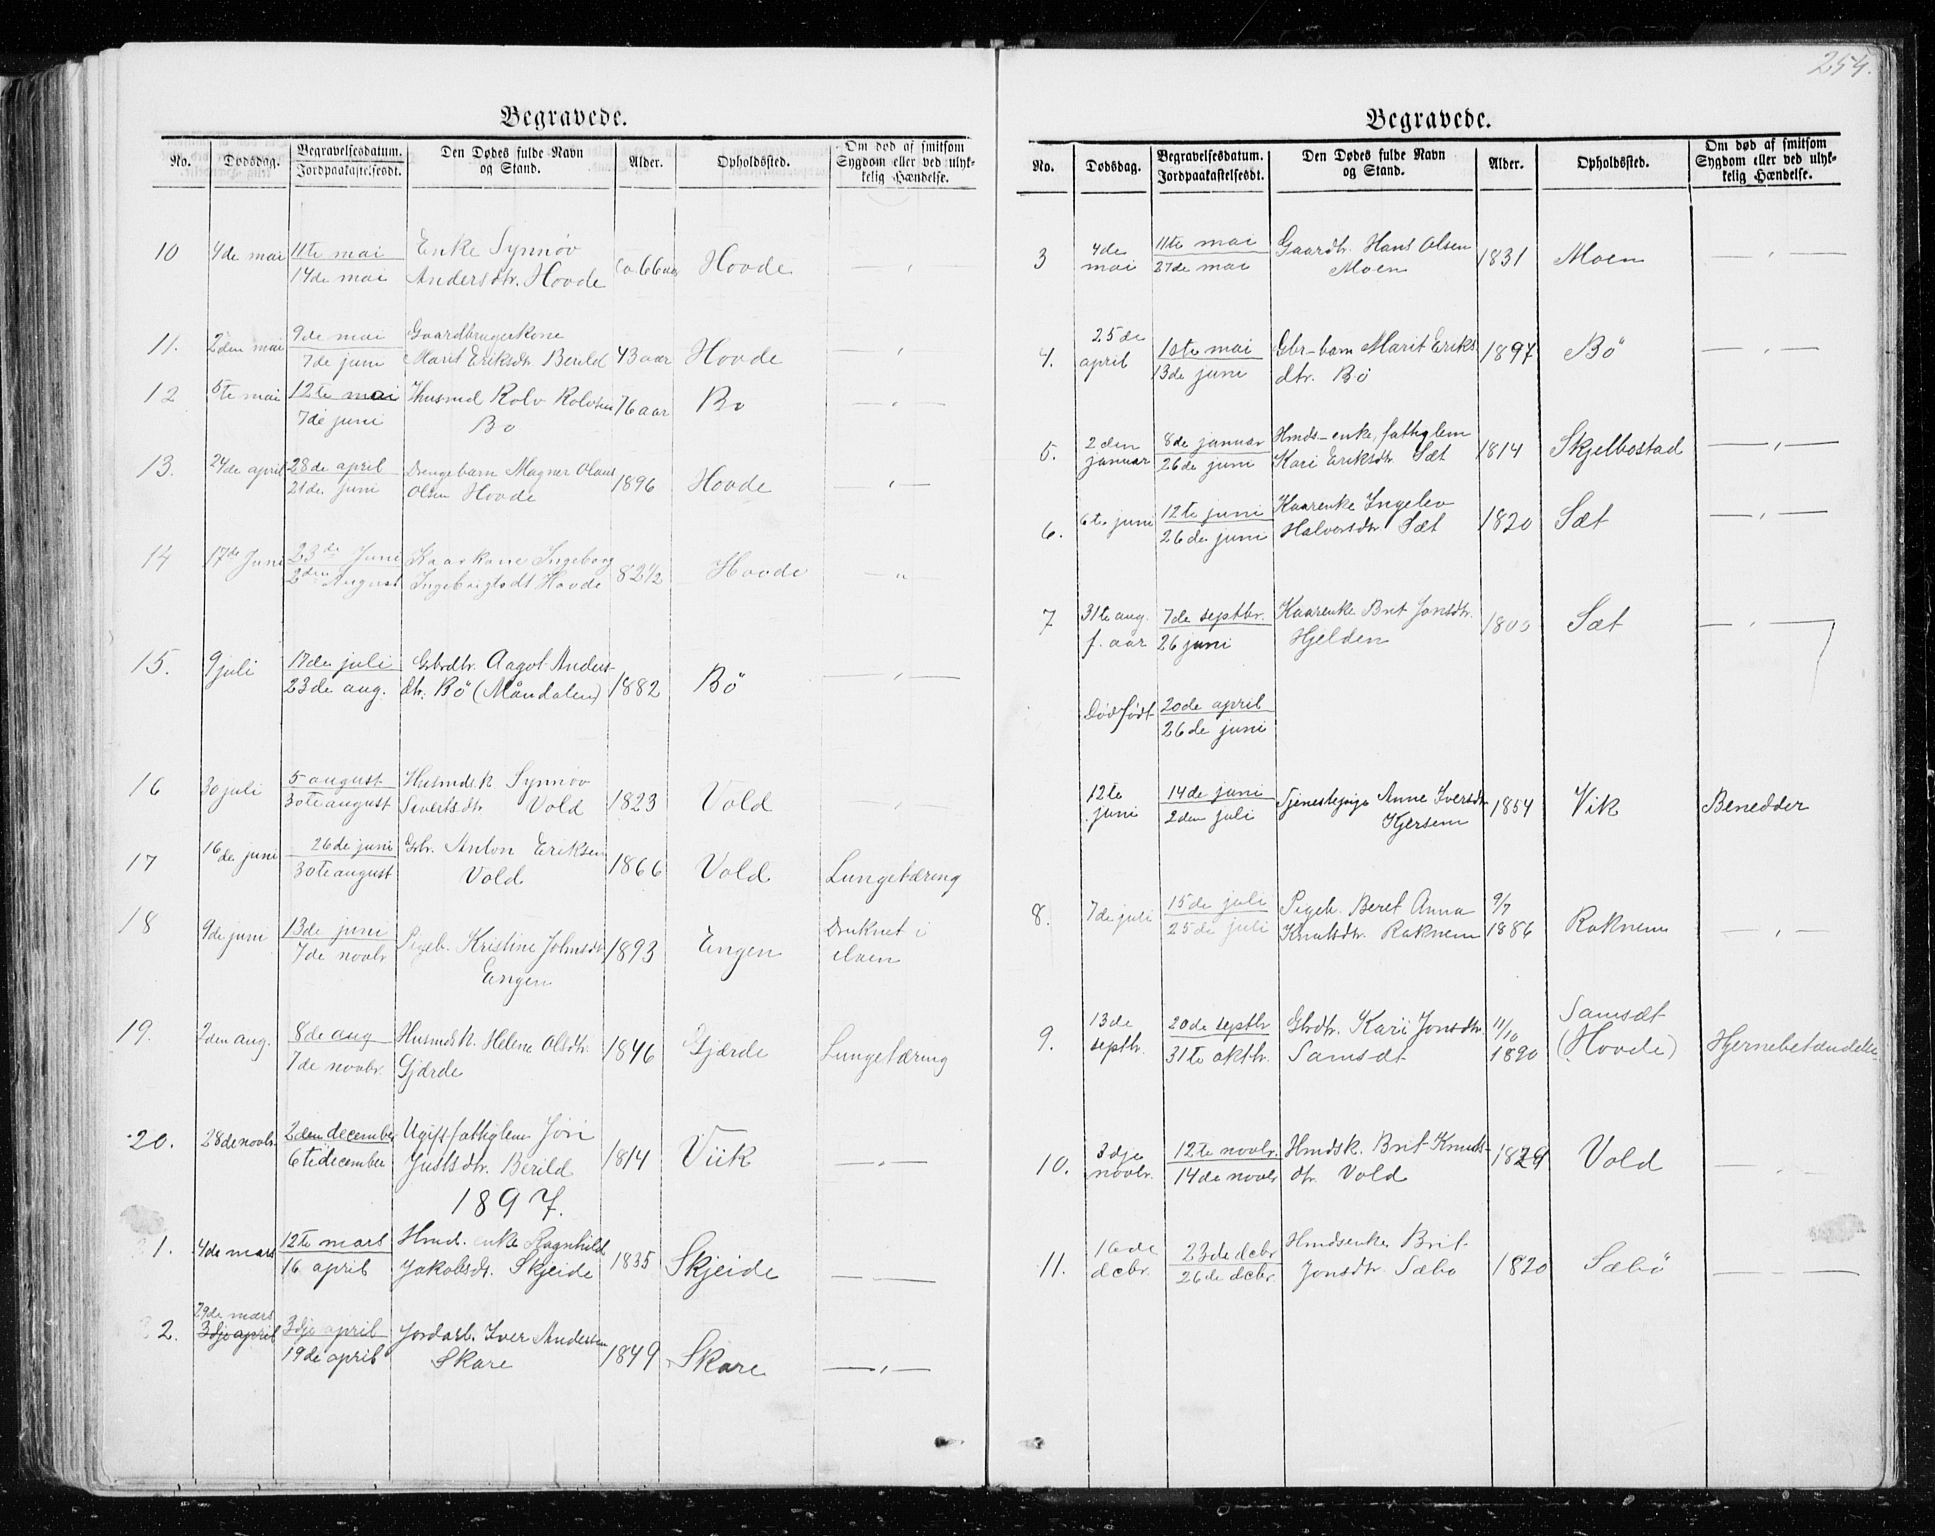 Begravede.
No. Dødsdag. Begravelsesdatum. Jordpaakastelsesdt. Den Dødes fulde Navn og Stand. Alder. Opholdssted. Om død af smitsom Sygdom eller ved ulykkelig Hændelse.
10 4de mai 11te mai Enke Synnøv
14de mai Andersdtr. Hovde Ca 66 aar Hovde — „ —
11. 2den mai 9de mai Gaardbrugerkone
7de juni Marit Eriksdtr Berild 43 aar Hovde — „ —
12 5te mai 12te mai Husmd Rolv Rolvsen 76 aar Bø — „ —
7de juni Bø
13. 24de april 28de april Drengebarn Magner Olaus
21de juni Olsen Hovde 1896 Hovde — „ —
14 17de Juni 23de Juni Kaarkone Ingeborg
2den August Ingebrigtsdt Hovde 82 1/2 Hovde — „
15. 9 juli 17de juli Gbrdtr. Aagot Anders-
23de aug. dtr. Bö (Måndalen) 1882 Bö — „ —
16 30 juli 5 august Husmdsk Synnøv
30te august Sivertsdtr Vold 1823 Vold — „ —
17 16de juni 26de juni Gbr. Anton Eriksen
30te august Vold 1866 Vold Lungetæring
18 9de juni 13de juni Pigeb. Kristine Johnsdtr 1893 Engen Druknet i
7de novbr Engen elven
19. 2den aug. 8de aug Husmdsk. Helene Olsdtr. 1846 Gjærde Lungetæring
7de novbr. Gjærde
20. 28de novbr. 2den december Ugift fattiglem Jøri
6te december Justsdtr. Berild 1814 Viik — „ —
1897.
1. 4de mars 12te mars Hmd. enke Ragnhild
16 april Jakobsdt. Skjeide 1835 Skjeide — —
2. 29de mars
3dje april 3dje april Jordarb. Iver Andersen
19de april Skare 1849 Skare — „ —
254.
Begravede.
No. Dødsdag. Begravelsesdatum. Jordpaakastelsesdt. Den Dødes fulde Navn og Stand. Alder. Opholdssted. Om død af smitsom Sygdom eller ved ulykkelig Hændelse.
3 4de mai 11te mai Gaardbr. Hans Olsen
27de mai Moen 1831 Moen — „ —
4. 25de april 1ste mai Gbr-barn Marit Eriks
13de juni dtr. Bö 1897 Bö — „ —
5. 2den januar 8de januar Hmds-enke, fattiglem
26de juni Kari Eriksdtr. Sæt 1814 Skjelbostad — „ —
6. 6te juni 12te juni Kaarenke Ingelev
26de juni Halvorsdtr Sæt 1820 Sæt — „ —
7 31te aug. f. aar 7de septbr. Kaarenke Brit Jonsdtr.
26 juni Hjelden Sæt — „ —
Dødfødt 20de april
26de juni
12te juni 14de juni Tjenestepige Anne Iversdtr
2den juli Kjersem 1854 Vik Benedder
8. 7de juli 15de juli Pigeb. Beret Anna 9/7
25de juli Knutsdtr. Raknem 1886 Raknem — „ —
9. 13de septbr. 20de septbr Gbrdtr. Kari Jonsdtr. 11/10 Samsæt
31te oktbr. Samsæt 1890 (Hovde) Hjernebetændelse
10. 3dje novbr. 12te novbr. Hmdsk. Brit Knuts-
14de novbr dtr. Vold 1829 Vold — „ —
11. 16de dcbr. 23de dcbr Hmdsenke Brit
26de dcbr. Jonsdtr Sæbø 1820 Sæbö — — —